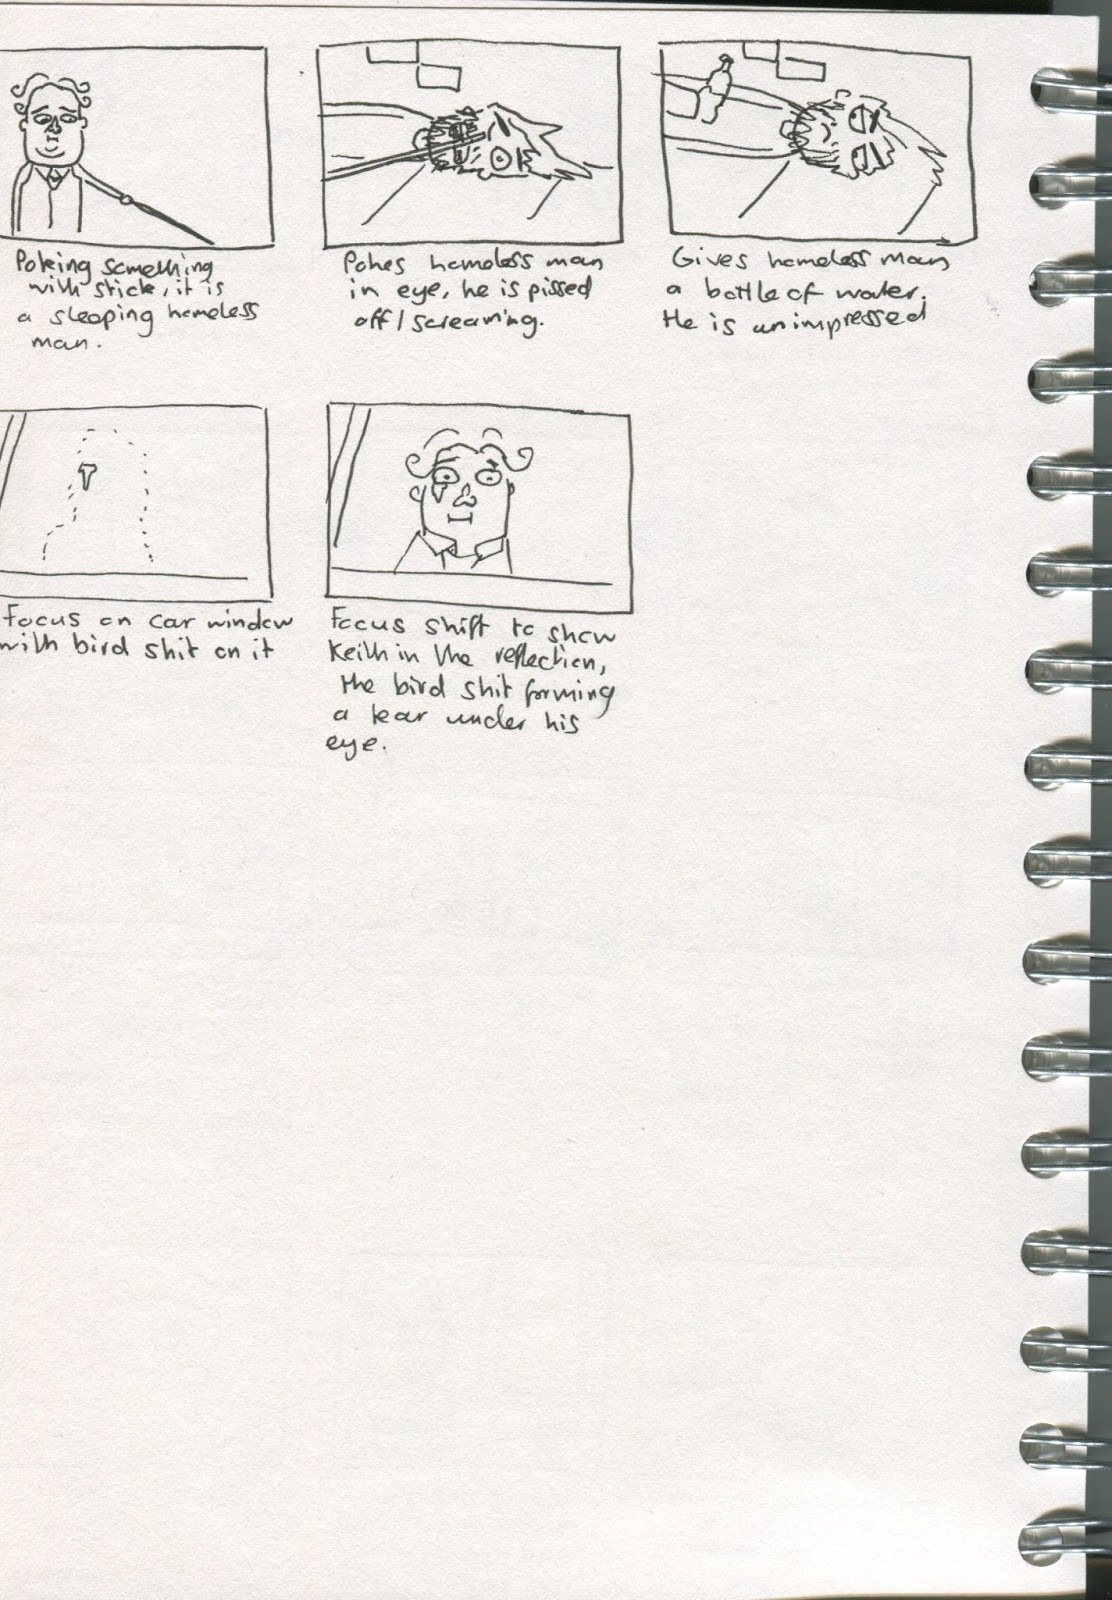 Poking something
with stick, it is
a sleeping homeless
man.
Pokes homeless man
in eye, he is pissed
off/screaming.
Gives homeless man
a bottle of water.
He is unimpressed
Focus on car window
with bird shit on it
Focus shift to show
Keith in the reflection,
the bird shit forming
a tear under his
eye.